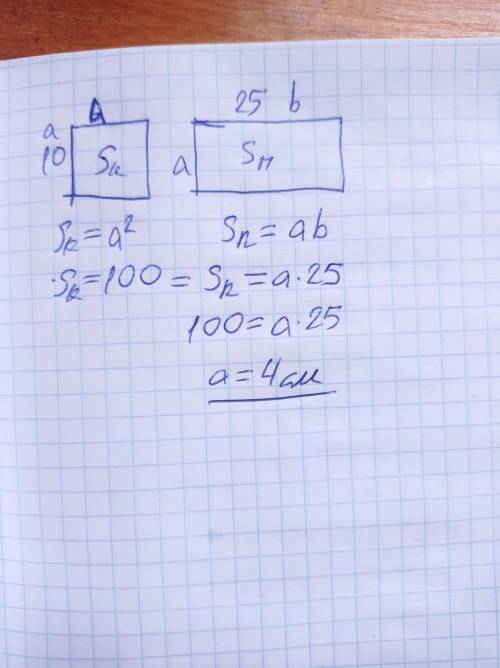 a
25 b
a
10 Sк
a Sп
Sк = a²
Sп = ab
Sк = 100 = Sп = a · 25
100 = a · 25
a = 4 см